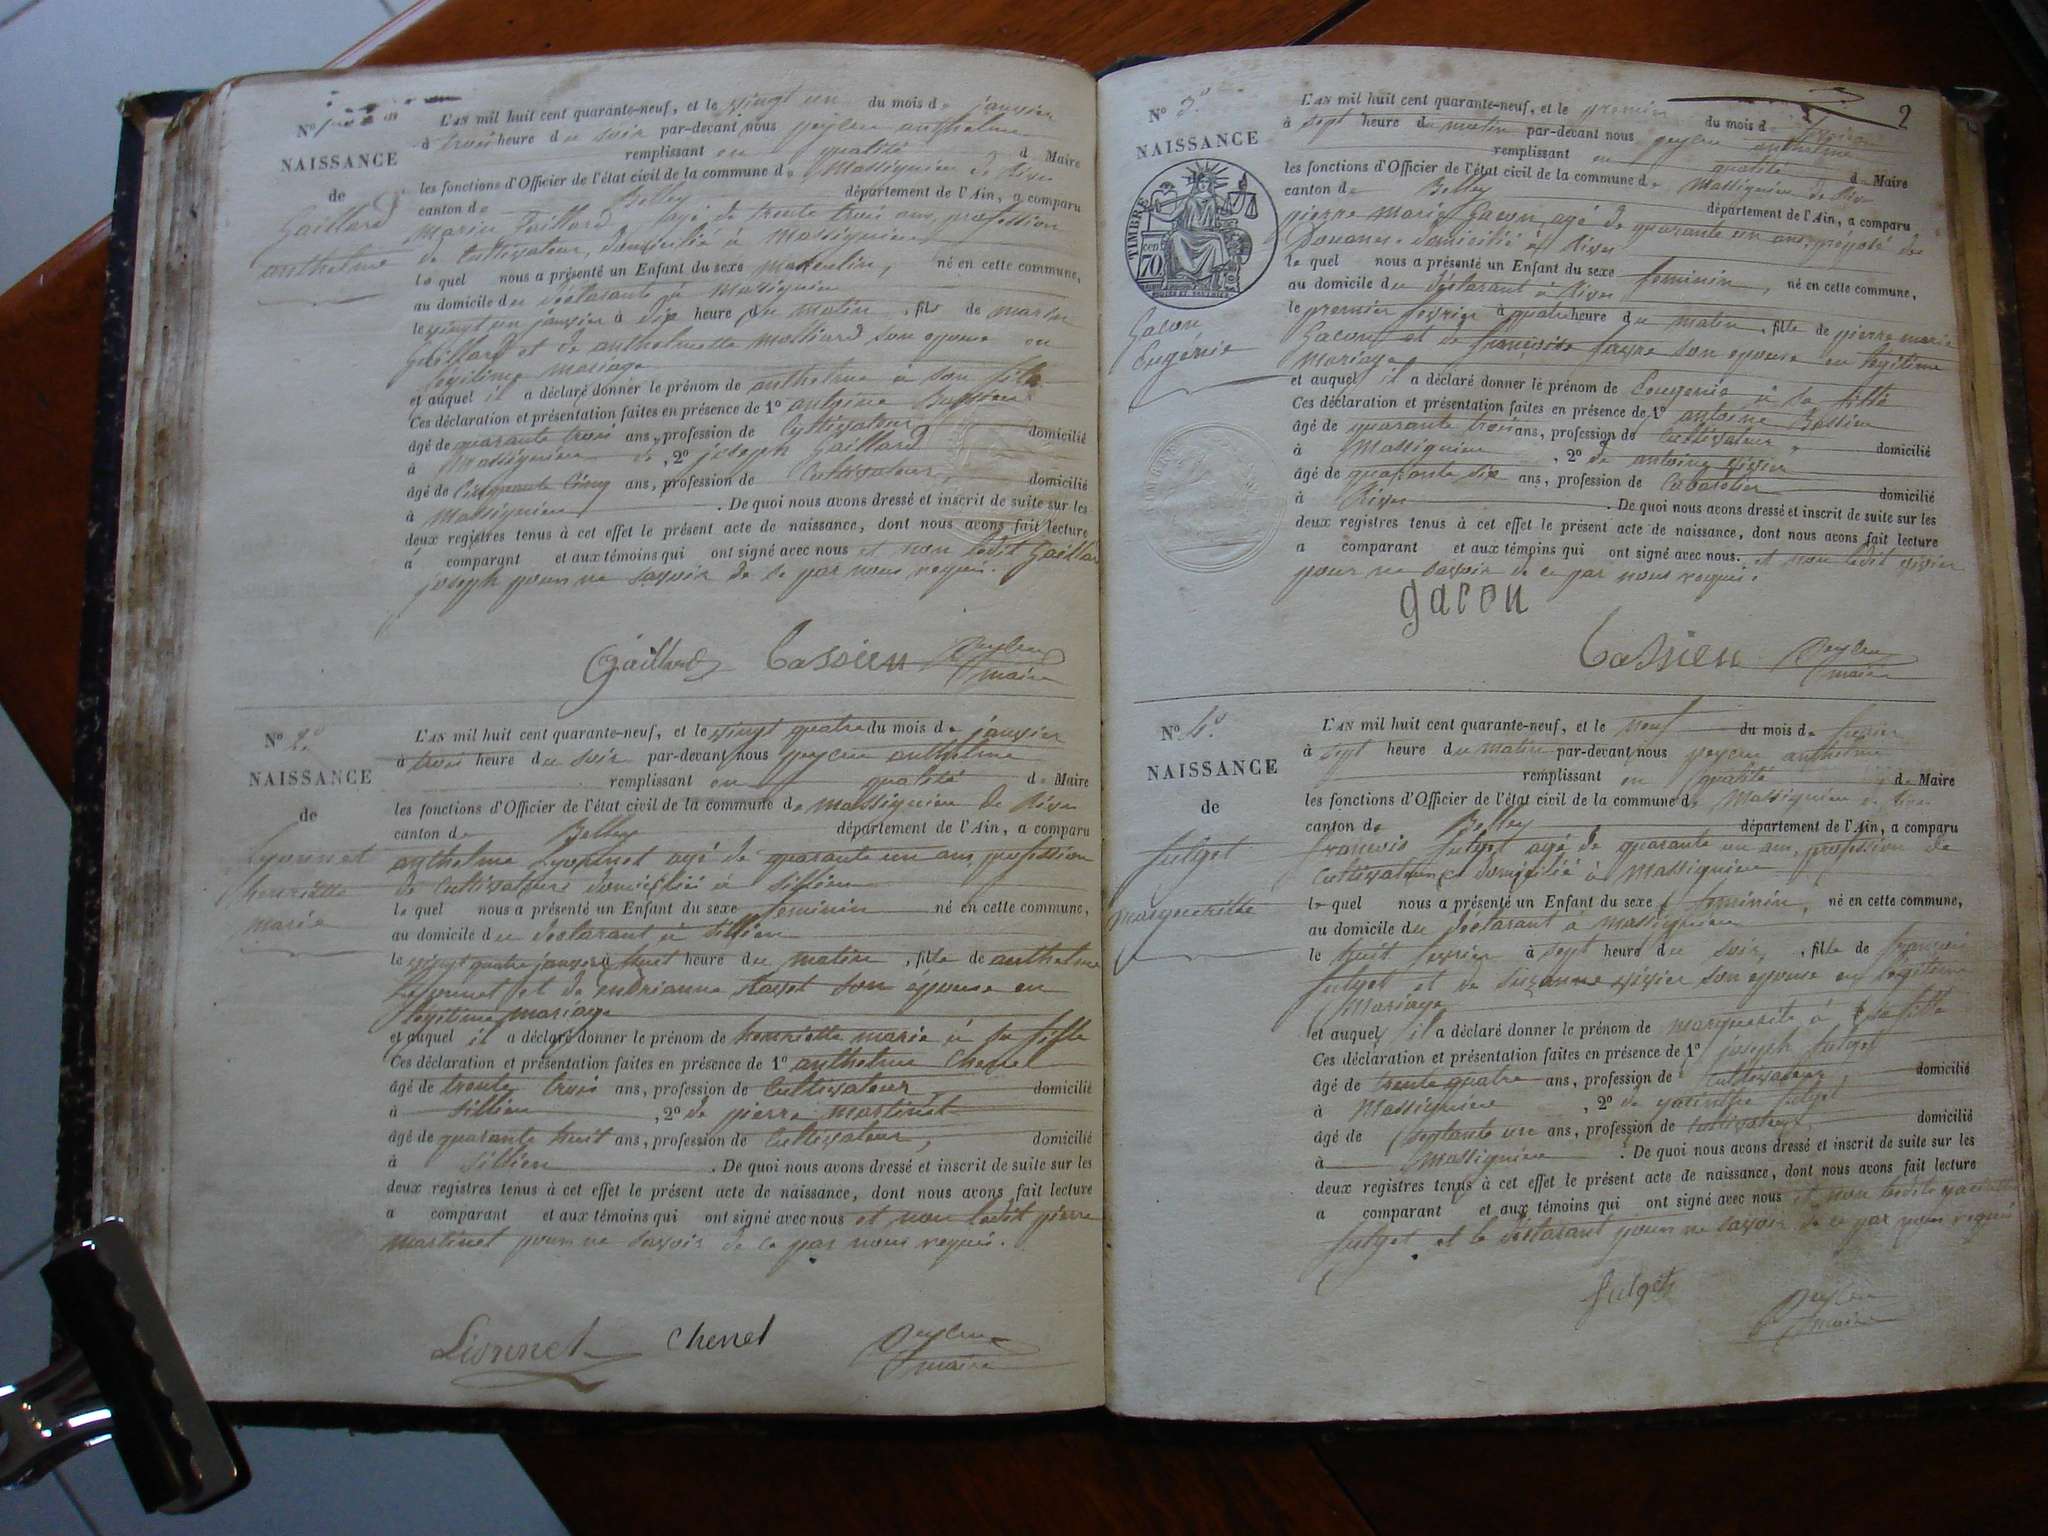 No
NAISSANCE
de
Gaillard
anthelme
L'AN mil huit cent quarante-neuf, et le vingt un du mois de janvier
à trois heure du soir par-devant nous peyleu anthelme
remplissant en qualité d Maire
les fonctions d'Officier de l'état civil de la commune de Massignieu de Rives
canton de Belley département de l'Ain, a comparu
Marin Gaillard agé de trente trois ans, profession
de Cultivateur, domicilié à Massignieu
le quel nous a présenté un Enfant du sexe masculin, né en cette commune,
au domicile du déclarant à Massignieu
le vingt un janvier à dix heure du matin, fils de marin
Gaillard et de anthelmette son epouse en
légitime mariage
et auquel il a déclaré donner le prénom de anthelme à son fils
Ces déclaration et présentation faites en présence de 1º antoine
âgé de quarante trois ans, profession de Cultivateur domicilié
à Massignieu de , 2º joseph Gaillard
âgé de Cinquante Cinq ans, profession de Cultivateur, domicilié
à Massignieu . De quoi nous avons dressé et inscrit de suite sur les
deux registres tenus à cet effet le présent acte de naissance, dont nous avons fait lecture
a comparant et aux témoins qui ont signé avec nous et non ledit Gaillard
joseph pour ne savoir de ce par nous requis.
Gaillard Bassieu peyleu
maire
No 2º
NAISSANCE
de
Lyonnet
henriette
marie
L'AN mil huit cent quarante-neuf, et le vingt quatre du mois de janvier
à trois heure du soir par-devant nous peyleu anthelme
remplissant en qualité de Maire
les fonctions d'Officier de l'état civil de la commune de Massignieu de Rives
canton de Belley département de l'Ain, a comparu
anthelme Lyonnet agé de quarante un ans, profession
de Cultivateur domicilié à sillieu
le quel nous a présenté un Enfant du sexe feminin né en cette commune,
au domicile du déclarant à sillieu
le vingt quatre janvier à huit heure du matin, fille de anthelme
Lyonnet et de andrianne son épouse en
legitime mariage
et auquel il a déclaré donner le prénom de henriette marie à sa fille
Ces déclaration et présentation faites en présence de 1º anthelme Chenel
âgé de trente trois ans, profession de Cultivateur domicilié
à sillieu , 2º de pierre martinet
âgé de quarante huit ans, profession de Cultivateur, domicilié
à sillieu . De quoi nous avons dressé et inscrit de suite sur les
deux registres tenus à cet effet le présent acte de naissance, dont nous avons fait lecture
a comparant et aux témoins qui ont signé avec nous et non ledit pierre
martinet pour ne savoir de ce par nous requis.
Lionnet Chenel peyleu
maire
2
No 3º
NAISSANCE
TIMBRE
70 cen
Gacon
Eugénie
L'AN mil huit cent quarante-neuf, et le premier du mois de fevrier
à sept heure du matin par-devant nous peyleu anthelme
remplissant en qualité d Maire
les fonctions d'Officier de l'état civil de la commune de Massignieu de Rives
canton de Belley département de l'Ain, a comparu
pierre marie Gacon, agé de quarante un ans, préposé des
Douanes domicilié à Rives
le quel nous a présenté un Enfant du sexe feminin, né en cette commune,
au domicile du déclarant à Rives
le premier fevrier à quatre heure du matin, fille de pierre marie
Gacon et de françoise favre son epouse en légitime
Mariage
et auquel il a déclaré donner le prénom de Eougenie à sa fille
Ces déclaration et présentation faites en présence de 1º antoine Bassieu
âgé de quarante trois ans, profession de Cultivateur domicilié
à Massignieu , 2º de antoine vivier
âgé de quarante six ans, profession de Cabaretier domicilié
à Rives . De quoi nous avons dressé et inscrit de suite sur les
deux registres tenus à cet effet le présent acte de naissance, dont nous avons fait lecture
a comparant et aux témoins qui ont signé avec nous. et non ledit vivier
pour ne savoir de ce par nous requis.
gacon
Bassieu peyleu
maire
No 4º
NAISSANCE
de
fulget
marguerite
L'AN mil huit cent quarante-neuf, et le neuf du mois de fevrier
à sept heure du matin par-devant nous peyleu anthelme
remplissant en qualité de Maire
les fonctions d'Officier de l'état civil de la commune de Massignieu de Rives
canton de Belley département de l'Ain, a comparu
francois fulget agé de quarante un ans, profession de
Cultivateur domicilié à Massignieu
le quel nous a présenté un Enfant du sexe feminin, né en cette commune,
au domicile du déclarant à massignieu
le huit fevrier à sept heure du soir, fille de francois
fulget et de suzanne vivier son epouse en légitime
Mariage
et auquel il a déclaré donner le prénom de marguerite à sa fille
Ces déclaration et présentation faites en présence de 1º joseph fulget
âgé de trente quatre ans, profession de cultivateur, domicilié
à Massignieu , 2º de yacinthe fulget
âgé de septante un ans, profession de cultivateur, domicilié
à Massignieu . De quoi nous avons dressé et inscrit de suite sur les
deux registres tenus à cet effet le présent acte de naissance, dont nous avons fait lecture
a comparant et aux témoins qui ont signé avec nous et non ledit yacinthe
fulget et le déclarant pour ne savoir de ce par nous requis
fulget peyleu
maire